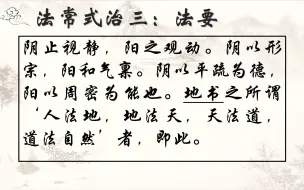 法常式治三：法要
阴止视静，阳之观动。阴以形
宗，阳和气禀。阴以平疏为德，
阳以周密为能也。地书之所谓
‘人法地，地法天，天法道，
道法自然’者，即此。